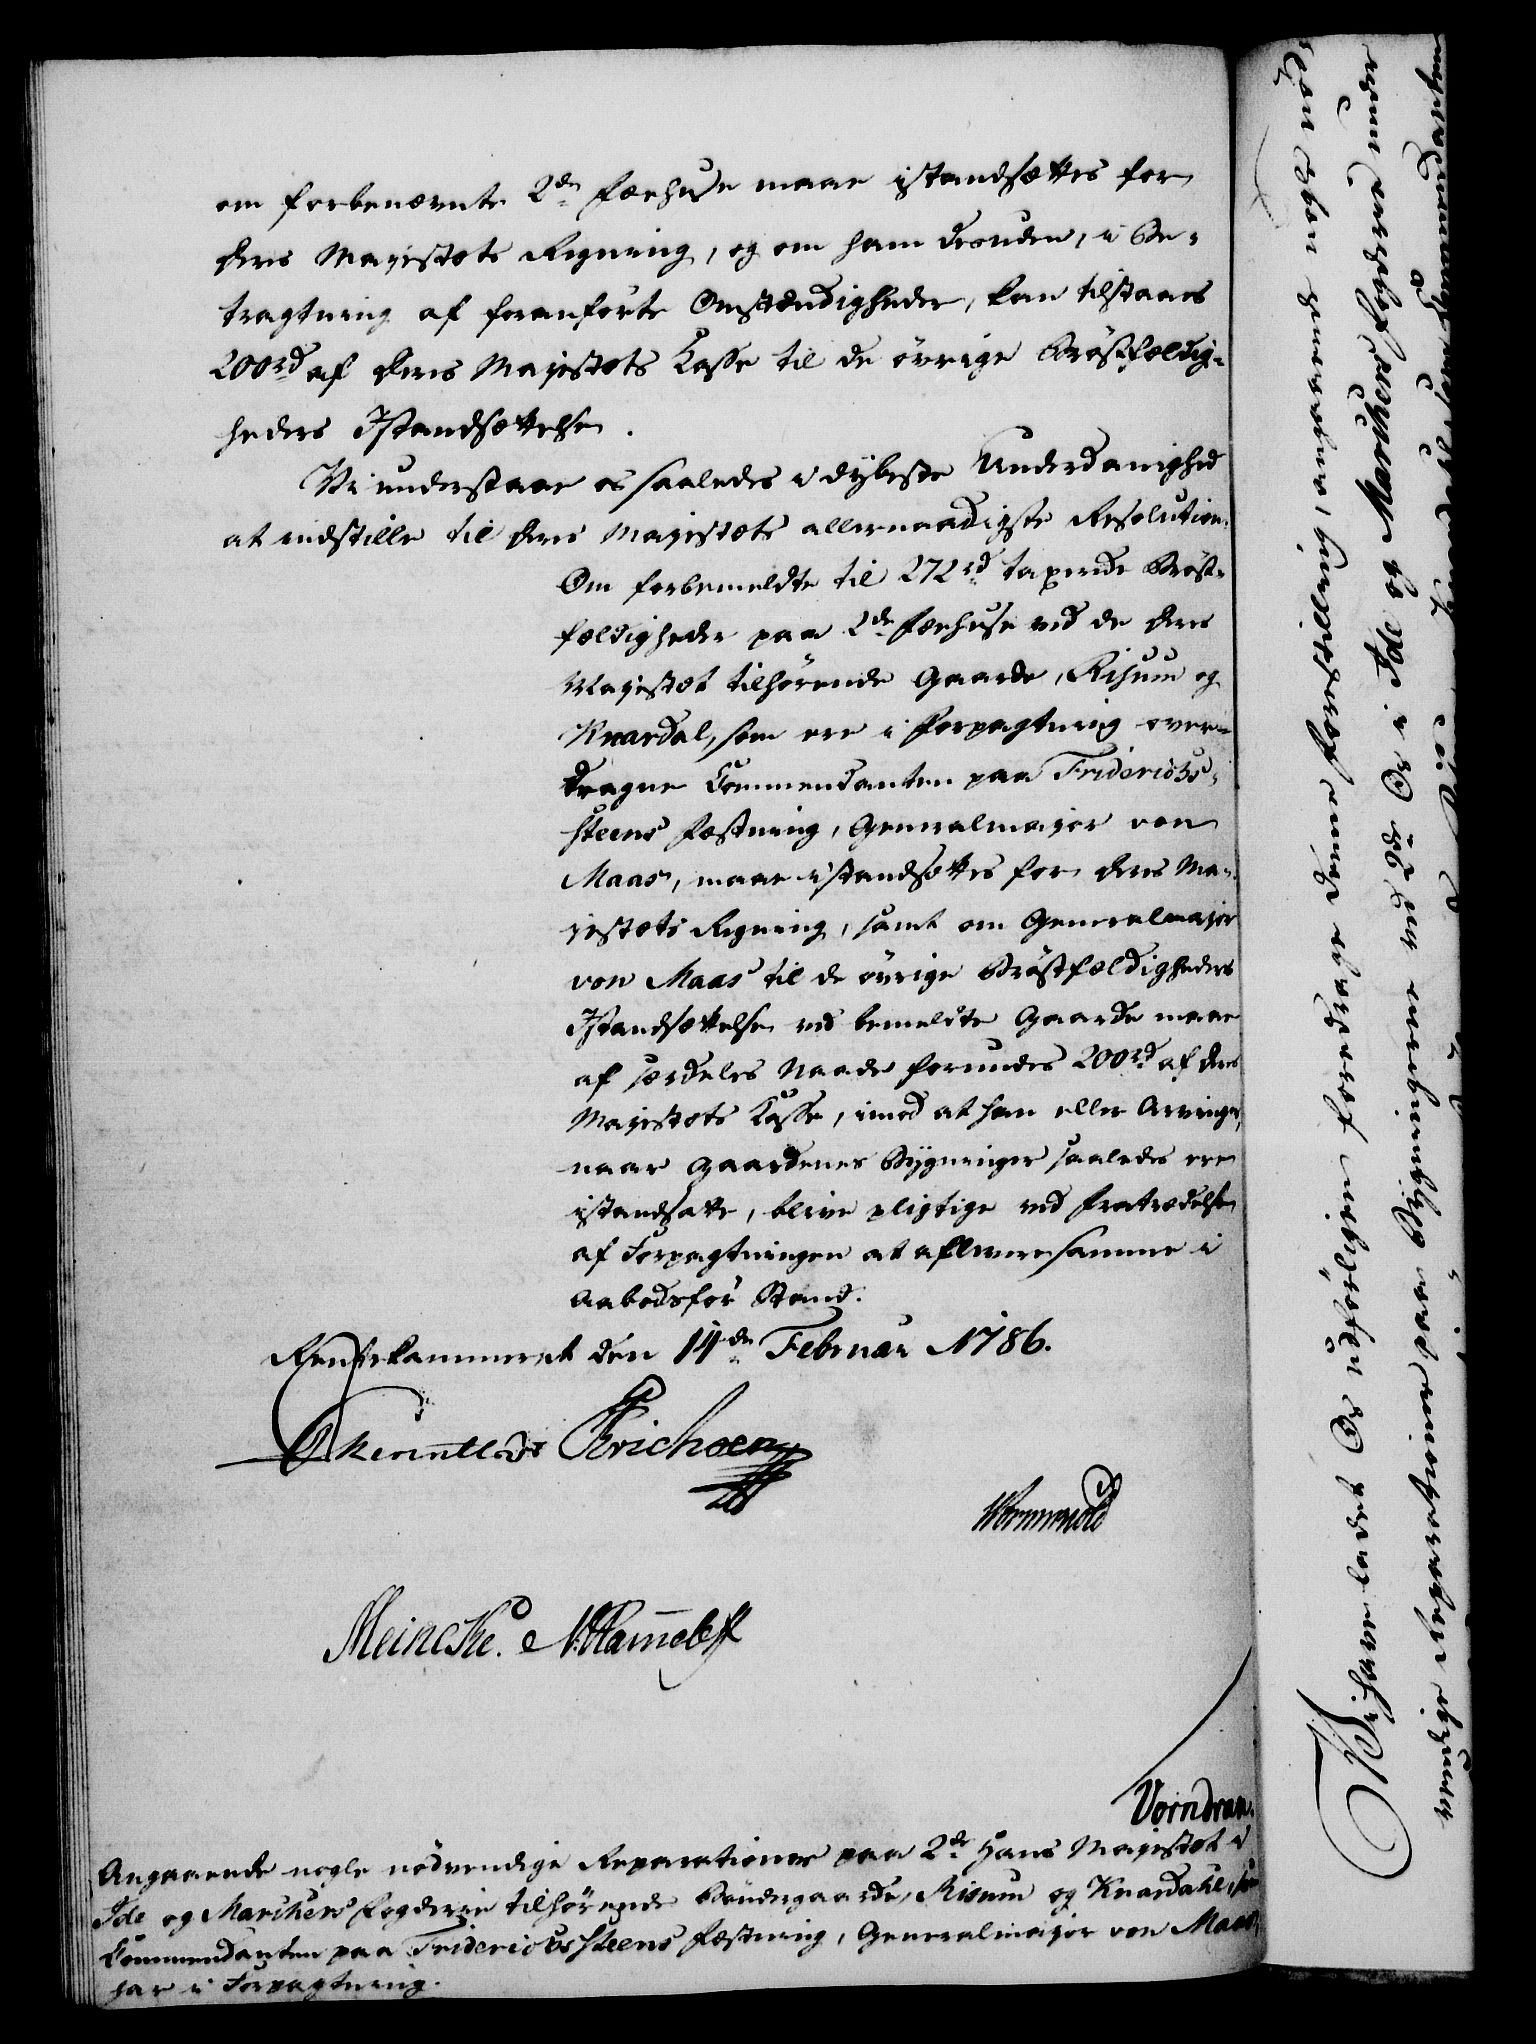 om forbenævnte 2de Fæehuse maae istandsættes for
Deres Majestæts Regning, og om ham desuden, i Be-
tragtning af foranførte Omstændigheder, kan tilstaaes
200rd af Deres Majestæts Casse til de øvrige Bröstfældig-
heders Istandsættelse.
Vi understaae os saaledes i dybeste Underdanighed
at indstille til Deres Majestæts allernaadigste Resolution.
Om forbemeldte til 272rd taxerede Bröst-
fældigheder paa 2de Fæehuse ved de Deres
Majestæt tilhørende Gaarde, Risum og
Knardal, som ere i Forpagtning over-
dragne Commendanten paa Friderichs-
steens Fæstning, Generalmajor von
Maas, maae istandsættes for Deres Ma-
jestæts Regning, samt om Generalmajor
von Maas til de øvrige Bröstfældigheders
Istandsættelse ved bemeldte Gaarde maae
af særdeles Naade forundes 200rd af Deres
Majestæts Casse, imod at han eller Arvinger,
naar Gaardenes Bygninger saaledes ere
istandsatte, blive pligtige ved Fratrædelsen
af Forpagtningen at aflevere samme i
Aabodsfør Stand.
Rentekammeret den 14de Februar 1786.
Erichsen
Wormskiold
Meincke. Rammeleff
Vorndran.
Angaaende nogle nödvendige Reparationer paa 2de Hans Majestæt i
Ide og Marckers Fogderie tilhørende Bøndergaarde, Risum og Knardahl, som
Commendanten paa Friderichssteens Fæstning, Generalmajor von Maas,
har i Forpagtning.
Vi have ladet Os udførligen foredrage denne Forestilling, og
i Ide og Marckers Fogderie